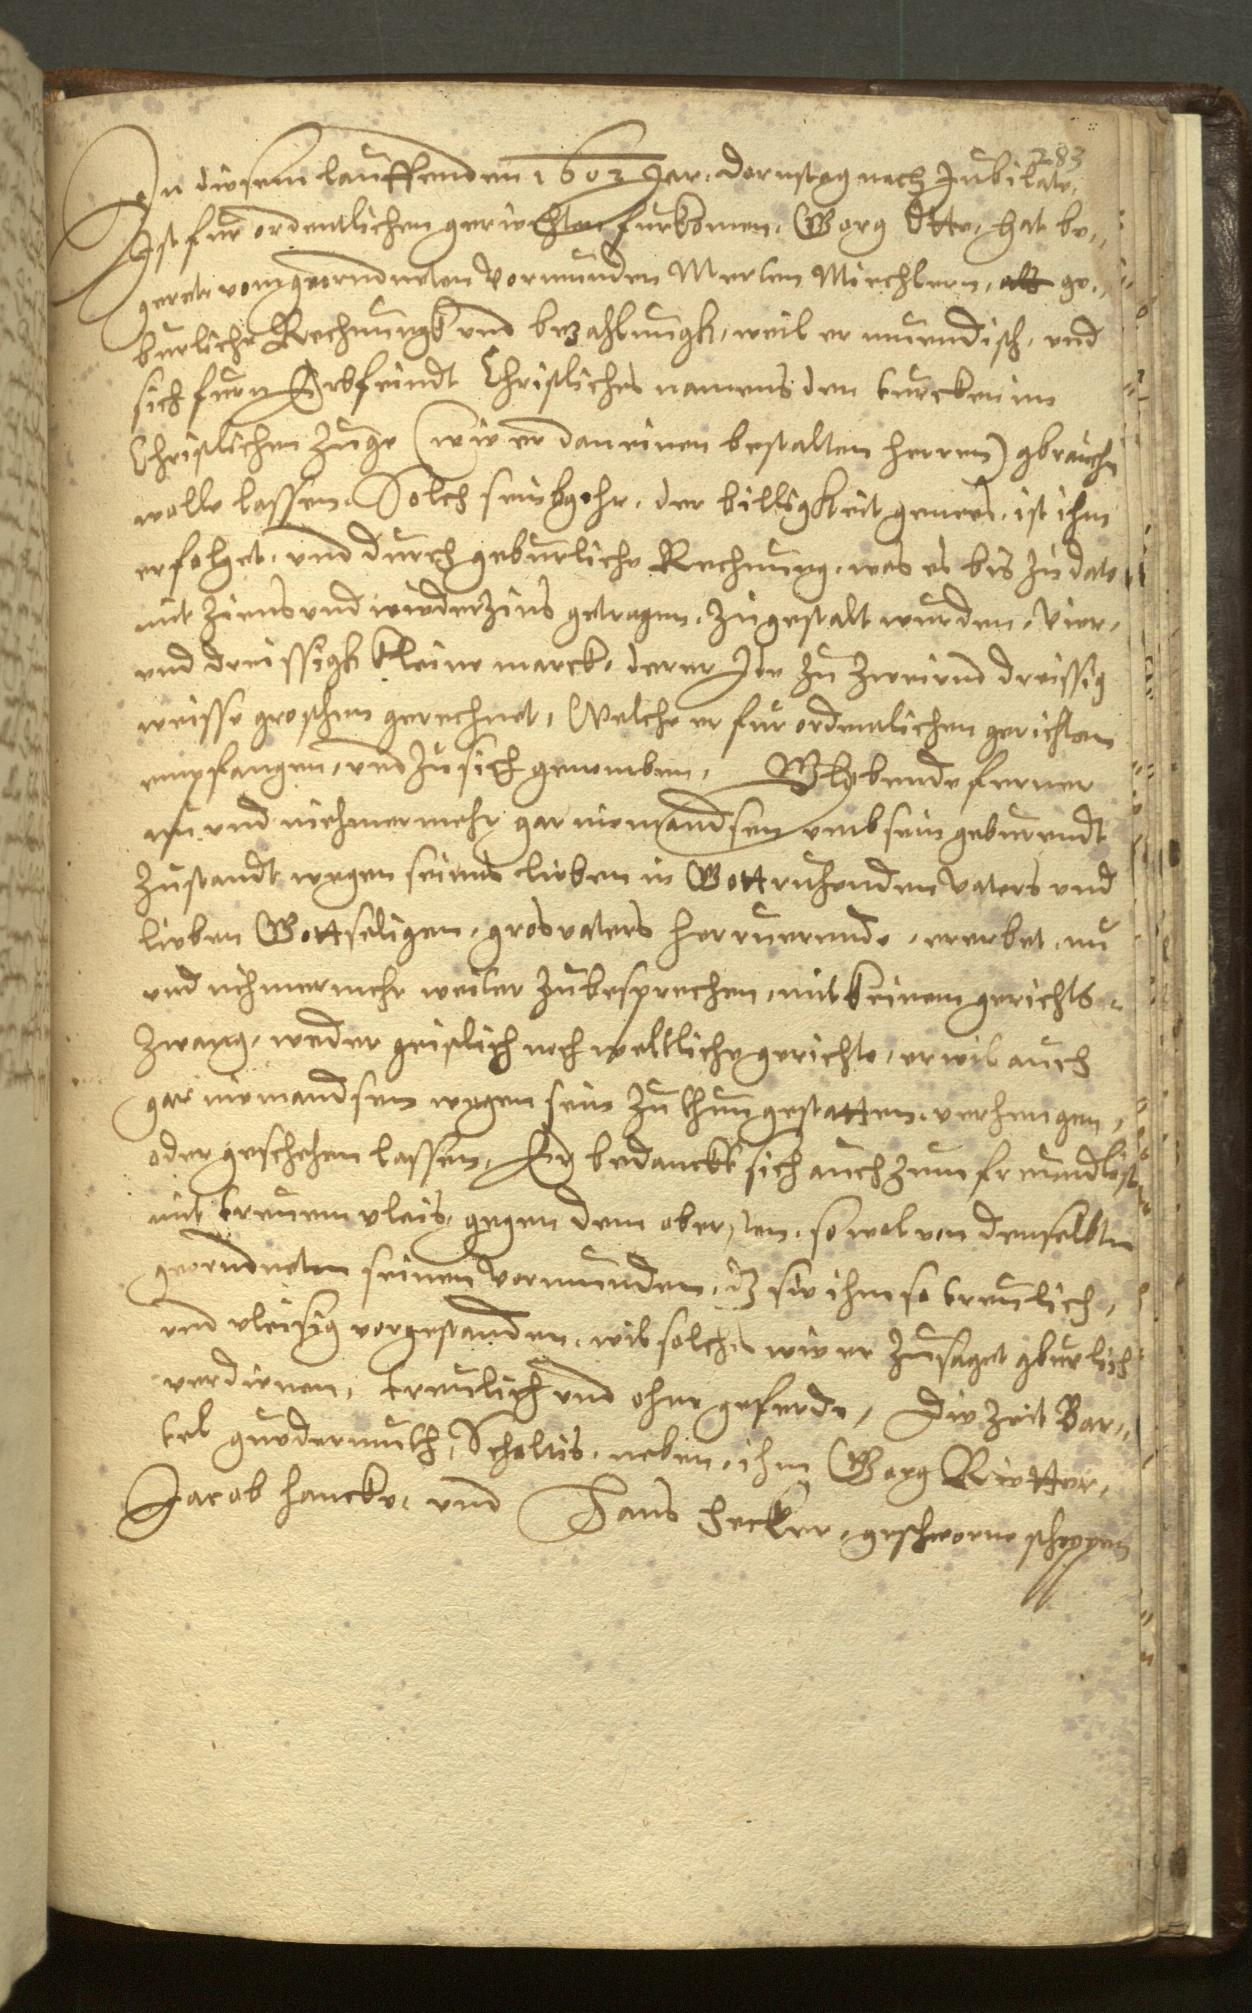 283
In diesem lauffenden 1603 Jar. dornstag nach Jubilate,
Ist fur ordentlichen gerichten furkomen, Gorg Otte, hat be„
gerett vom geordneten Vormunden Merten Mirchbern, gę„
burliche Rechnungk und bezahlungk, weil er mundisch, und
sich furn Erbfeindt Christliches namens den turcken im
Christlichen Zuge (wie er dan einen bestalten herren) gbrauchen
wolle lassen. Solch sein bgehr, der billigkeit gemes, ist ihm
erfolget, und durch geburliche Rechnung, was es bis zu dato
mit Zins und wiederzins getragen, zugestalt wurden, Vier„
und dreissigk kleine marck, derer Jde zu zweiund dreissig
weisse groschen gerechnet, Welche er fur ordentlichen gerichten
empfangen, und zu sich genomben, Glybende ferner
nu und niehmermehr gar niemandsen umb sein geburendt
Zustandt wegen seines lieben in Gott ruhenden Vaters und
lieben Gottseligen, grosvaters herruerende, ererbet, nu
und nihmermehr weiter zubesprechen, mit keinem gerichts„
Zwang, weder geistlich noch weltliche gerichte, er wil auch
gar niemandsen wegen sein zu thun gestatten, verhengen,
oder geschehen lassen, Er bedanckt sich auch zum freundlichst
mit treuem vleis, gegen dem obersten, so wol von denselbten
geordneten seinen Vormunden, dz sie ihm so treulich,
und vleisig vorgestanden, wil solches wie er zusaget gburlich
verdienen, treulich und ohne geferde, Die Zeit Bar„
tel gudermuth, Scholtis, neben ihm Gorg Ritter,
Jacob hancke, und Hans hecker, geschworne scheppen